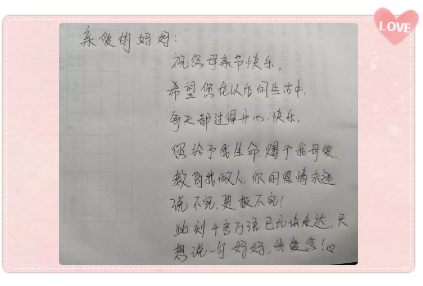 LOVE
亲爱的妈妈:
祝您母亲节快乐。
希望您在以后的生活中,
每天都过得开心、快乐。
您给予我生命,赐予我母爱,
教育我做人,你的恩情永远
说不完,更报不完!
此刻千言万语已无法表达,只
想说一句,妈妈,我爱您!